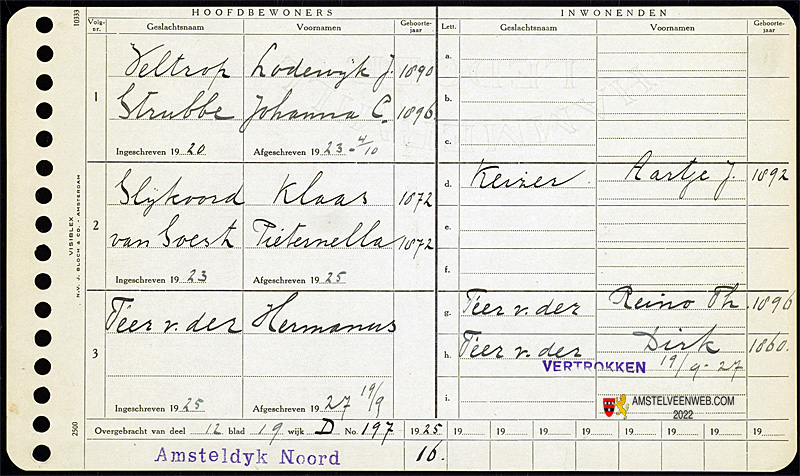 HOOFDBEWONERS
INWONENDEN
Volg-nr.
Geslachtsnaam
Voornamen
Geboorte-jaar
Lett.
Geslachtsnaam
Voornamen
Geboorte-jaar
10333
1
Veltrop Lodewijk J. 1890
Strubbe Johanna C. 1896
Ingeschreven 19 20 Afgeschreven 19 23 - 4/10
2
Slijkoord Klaas 1872
van Soest Pieternella 1872
Ingeschreven 19 23 Afgeschreven 19 25
3
Teer v. der Hermanus
Ingeschreven 19 25 Afgeschreven 19 27 19/9
a.
b.
c.
d. Keizer Aartje J. 1892
e.
f.
g. Teer v. der Reino Th. 1896
h. Teer v. der Dirk 1860.
VERTROKKEN 19/9-27
i.
AMSTELVEENWEB.COM
2022
VISIBLEX
N.V. J. BLOCH & CO. - AMSTERDAM
2500
Overgebracht van deel 12 blad 19 wijk D No. 197 19 25 19 19 19 19 19 19 19
Amsteldyk Noord 16.